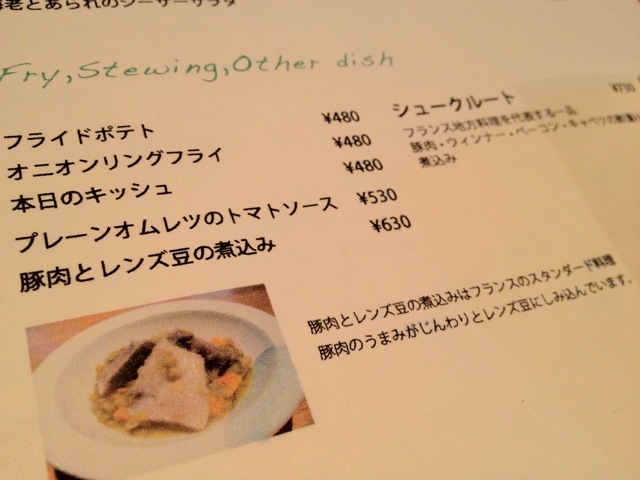 海老とあられのシーザーサラダ
Fry, Stewing, Other dish
フライドポテト ¥480
オニオンリングフライ ¥480
本日のキッシュ ¥480
プレーンオムレツのトマトソース ¥530
豚肉とレンズ豆の煮込み ¥630
シュークルート ¥730
フランス地方料理を代表する一品
豚肉・ウィンナー・ベーコン・キャベツの
煮込み
豚肉とレンズ豆の煮込みはフランスのスタンダード料理
豚肉のうまみがじんわりとレンズ豆にしみ込んでいます。